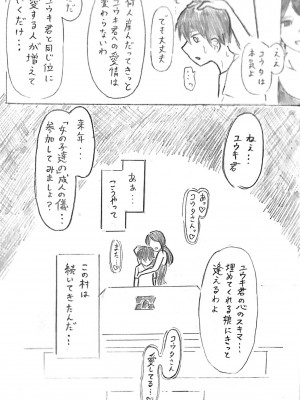 ええ
コウタは
本気よ
でも大丈夫
・・・っ
何人産んだってきっと
ユウキ君への愛情は
変わらないわ
ユウキ君と同じ位に
愛する人が増えて
いくだけ・・・
ねぇ・・
ユウキ君
ユウキ君の心のスキマ・・・
埋めてくれる娘にきっと
逢えるわよ
来年・・・
「女の子達」の成人の儀・・
参加してみましょ？
あぁ・・
こうやって
コウタさん
あっ
また
この村は
続いてきたんだ・・
コウタさん
愛してる・・